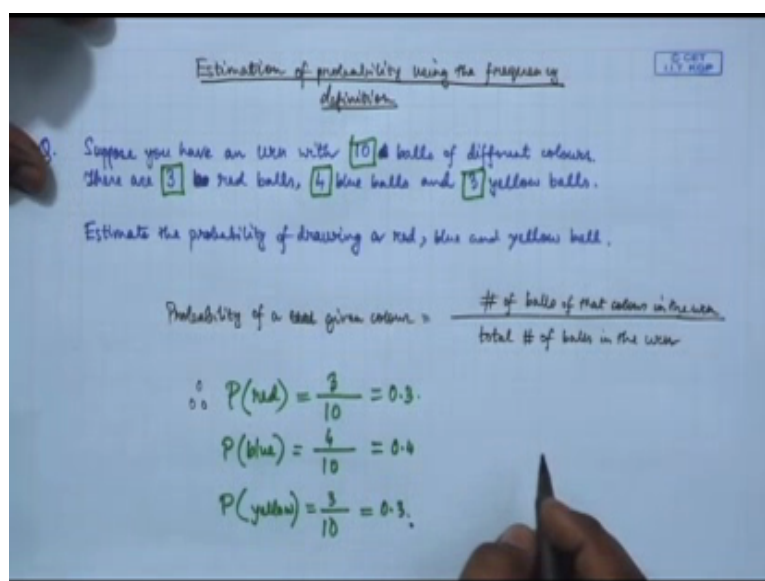 Estimation of probability using the frequency
definition
C CET
I.I.T. KGP
Q. Suppose you have an urn with 10 balls of different colours.
There are 3 red balls, 4 blue balls and 3 yellow balls.
Estimate the probability of drawing a red, blue and yellow ball.
Probability of a given colour = # of balls of that colour in the urn
total # of balls in the urn
∴ P(red) = 3/10 = 0.3.
P(blue) = 4/10 = 0.4
P(yellow) = 3/10 = 0.3.